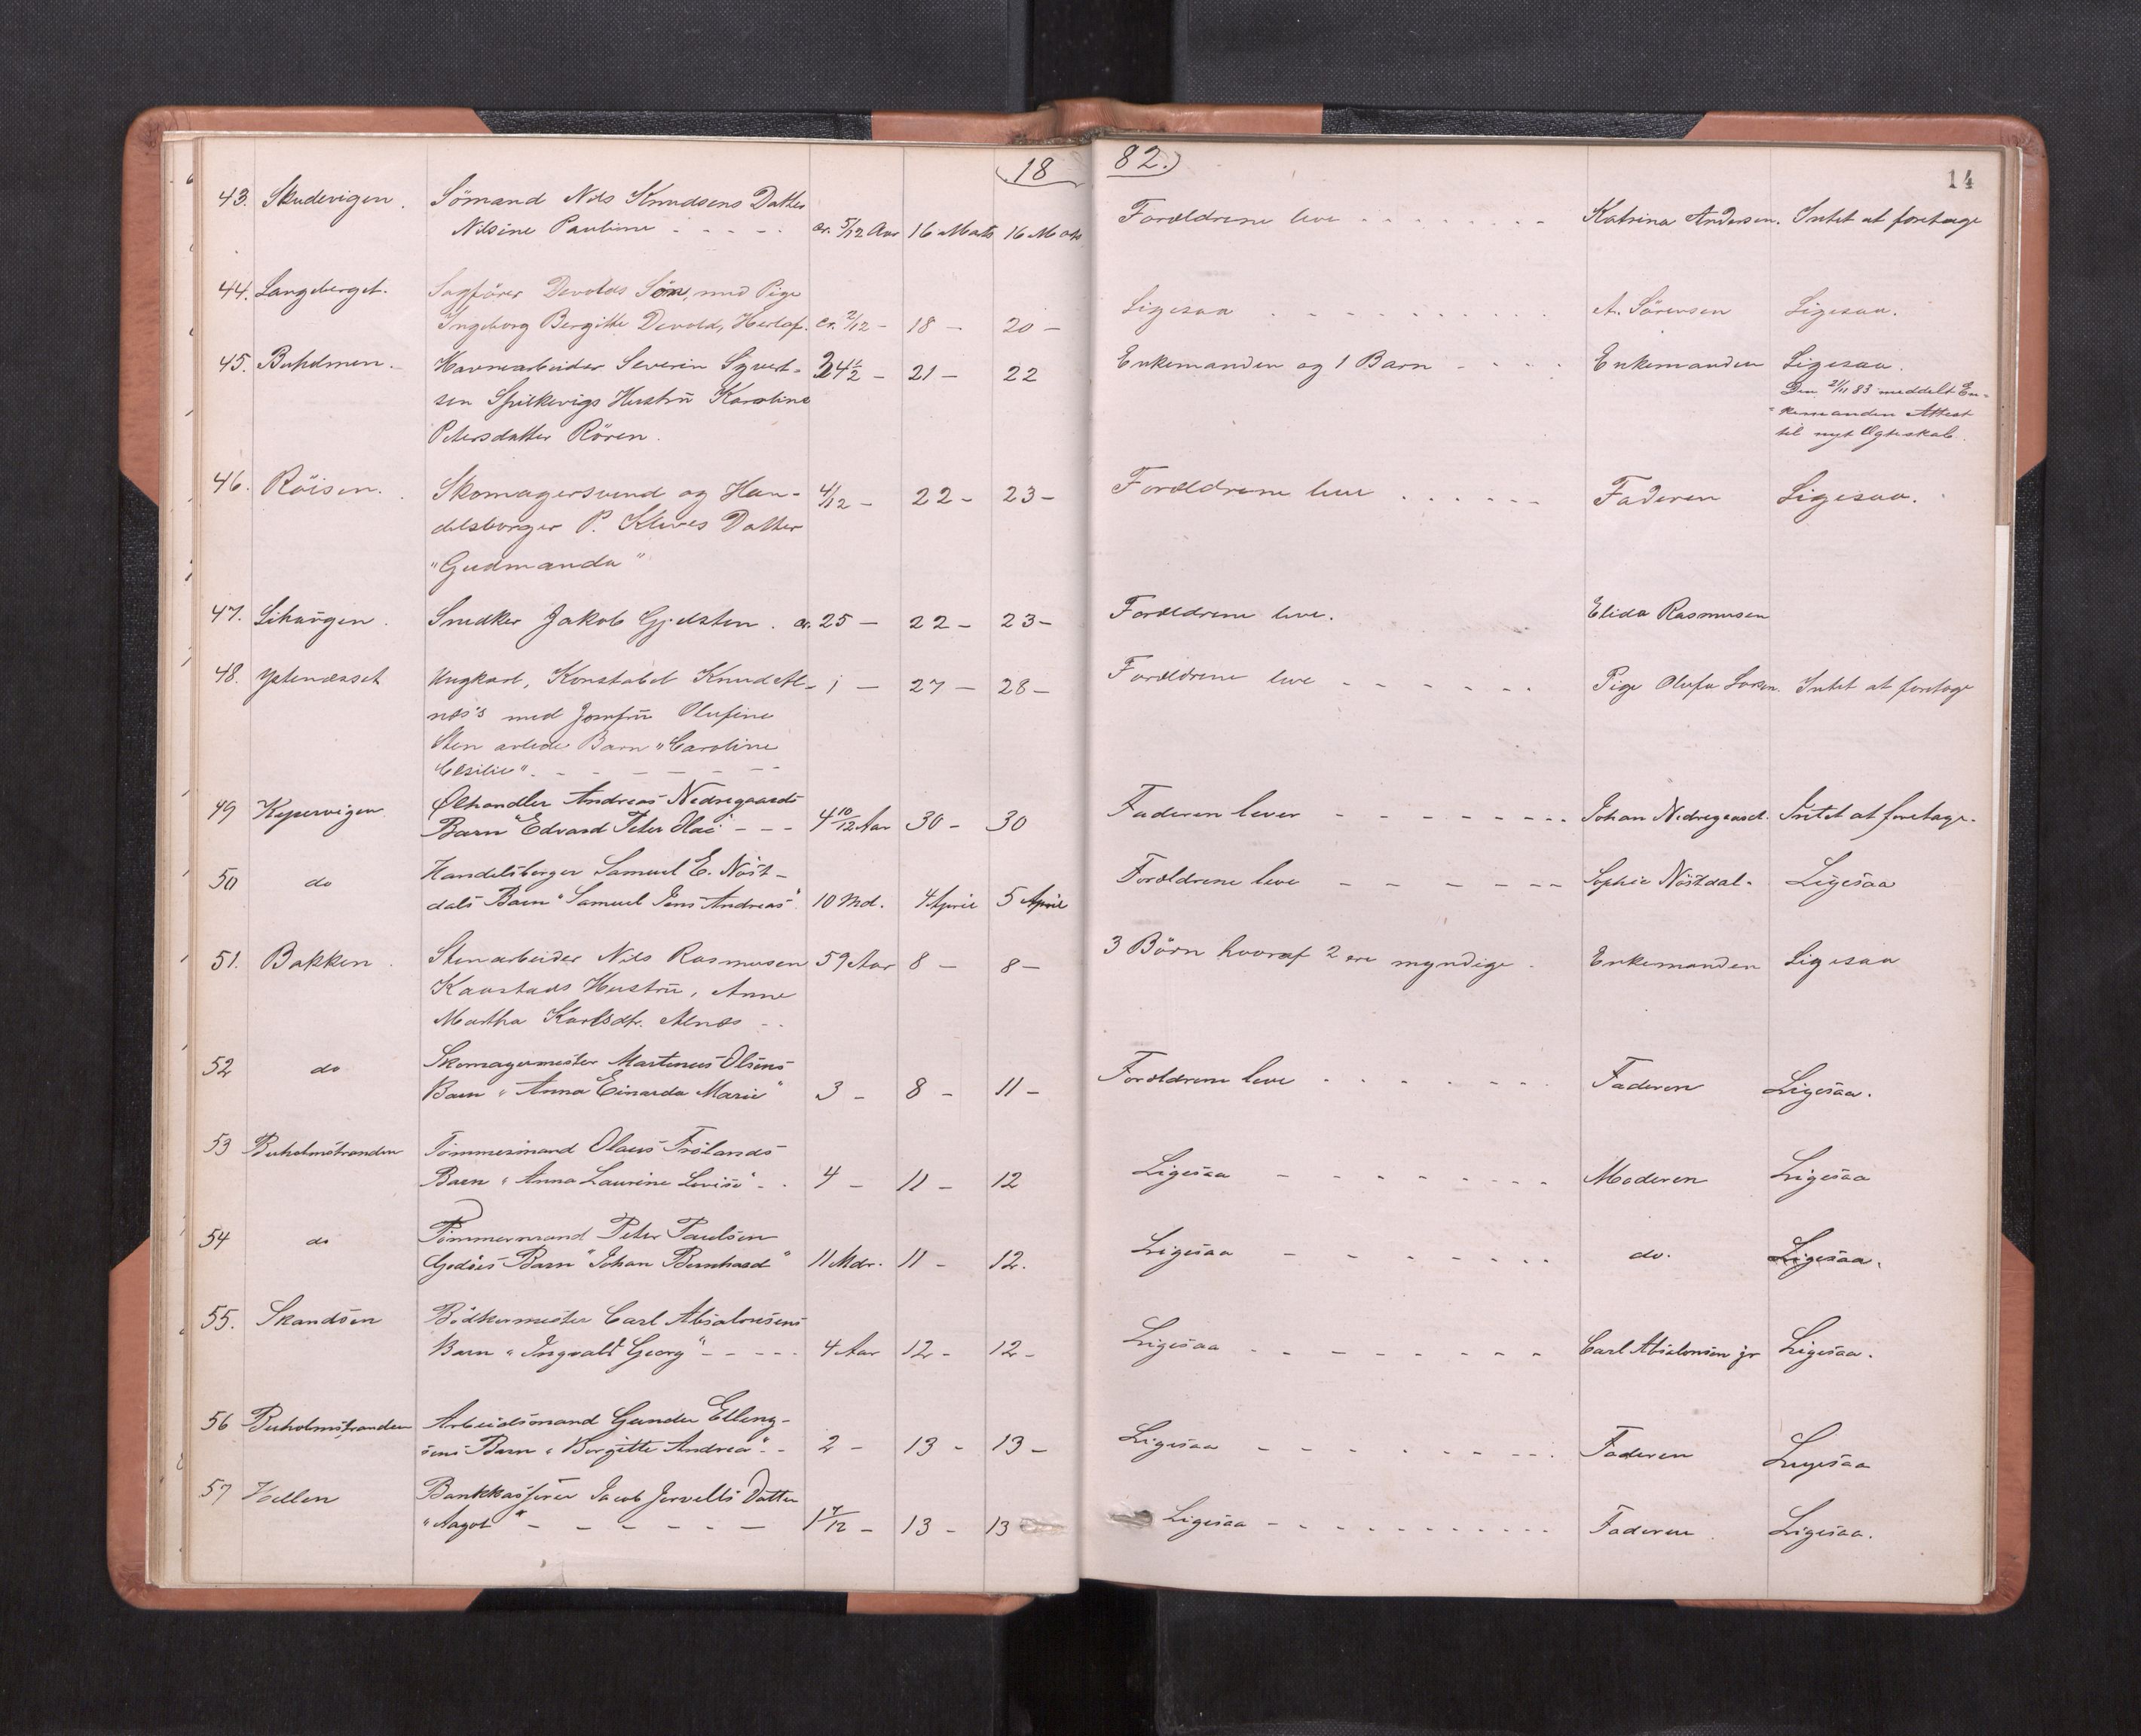 (18
82.)
14
43. Skudevigen. Sömand Nils Knudsens Datter
Nilsine Pauline - - - - cr. 5/12 Aar 16 Marts 16 Marts Forældrene leve - - - - - - - Katrina Andersen. Intet at foretage
44. Langeberget. Sagförer Devolds Sön, med Pige
Ingeborg Bergitte Devold, cr. 2/12 - 18 - 20 - Ligesaa - - - - - - - A. Sörensen Ligesaa.
45. Buholmen. Havnearbeider Severin Syvert- 24½ - 21 - 22 Enkemanden og 1 Barn - - - - Enkemanden Ligesaa.
sen Spilkevigs Hustrü Karoline Den 21/11 83 meddelt En-
Petersdatter Rören. kemanden Attest
til nyt Ægteskab.
46. Röisen. Skomagersvend og Han- 4/12 - 22 - 23 - Forældrene leve . . . . - - Faderen Ligesaa.
delsborger P. Klives Datter
"Gudmanda"
47. Lihaügen. Snedker Jakob Gjelsten. cr. 25 - 22 - 23 - Forældrene leve. Elida Rasmusen
48. Ystenæsset Ungkarl, Konstabel Knud Al- - 1 - 27 - 28 - Forældrene leve - - - - - - Pige Olufa Intet at foretage
næs's med Jomfrü Olufine
Sten avlede Barn "Caroline
Cesilie" - - - - - -
49 Kipervigen Ølhandler Andreas Nedregaards
Barn "Edvard Peter Olai" - - - 4 10/12 Aar 30 - 30 Faderen lever - - - - - - - - Johan Nedregaard. Intet at foretage.
50 do Handelsborger Samuel E. Nöst-
dals Barn "Samuel Jens Andreas" 10 Md. 4 April 5 April Forældrene leve - - - - - - Sophie Nöstdal. Ligesaa
51. Bakken. Stenarbeider Nils Rasmusen 59 Aar 8 - 8 - 3 Börn hvoraf 2 ere myndige. Enkemanden Ligesaa
Kaarstads Hustrü, Anne
Martha Karlsdtr. Alnæs - -
52 do Skomagermester Martinus Olsens
Barn "Anna Einarda Marie" 3 - 8 - 11 - Forældrene leve - - - - - - Faderen Ligesaa.
53 Buholmstranden Tömmermand Olaus Frölands
Barn "Anna Laurine Lovise" - - 4 - 11 - 12 Ligesaa - - - - - - - Moderen Ligesaa
54 do Tömmermand Peter Paulsen
Godöes Barn "Johan Bernhard" 11 Mdr. 11 - 12. Ligesaa - - - - - - do. Ligesaa.
55. Skandsen Bödkermester Carl Absalonsens
Barn "Ingvald Georg" - - - - 4 Aar 12 - 12 - Ligesaa - - - - - - - Carl Absalonsen jr Ligesaa.
56 Buholmstranden Arbeidsmand Gunder Elling-
sens Barn "Birgitte Andrea" - - 2 - 13 - 13 - Ligesaa - - - - - - - Faderen Ligesaa
57 Hellen Bankkasserer Jacob Jervells Datter
"Aagot" - - - - - - 1 7/12 - 13 - 13 Ligesaa - - - - - - - - Faderen Ligesaa.